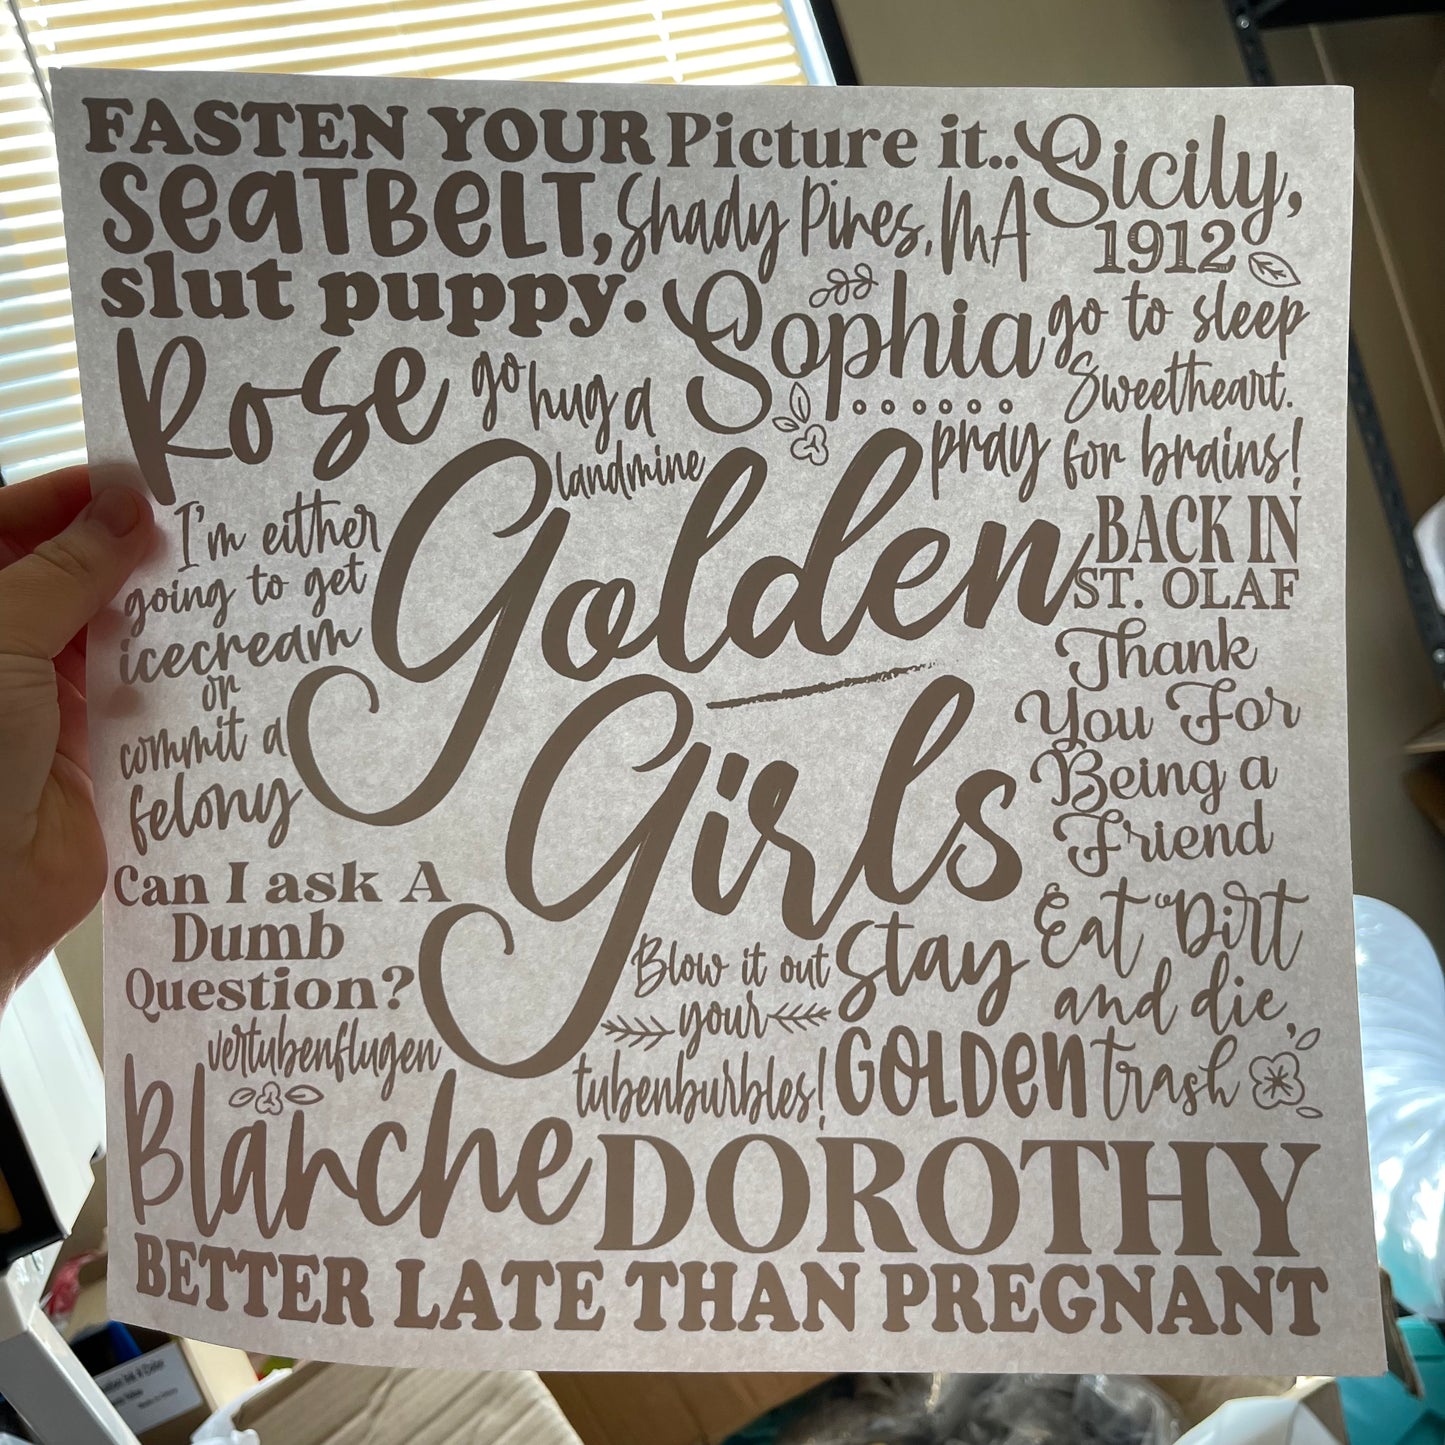 FASTEN YOUR
SeaTBeLT,
slut puppy.
Picture it..
Sicily,
1912
Shady Pines, MA
Rose
go hug a
landmine
Sophia
go to sleep
Sweetheart.
pray for brains!
I'm either
going to get
icecream
or
commit a
felony
Golden
Girls
BACK IN
ST. OLAF
Thank
You For
Being a
Friend
Can I ask A
Dumb
Question?
vertubenflugen
Blow it out
your
tubenburbles!
Stay
GOLDen
Eat Dirt
and die,
trash
Blanche
DOROTHY
BETTER LATE THAN PREGNANT